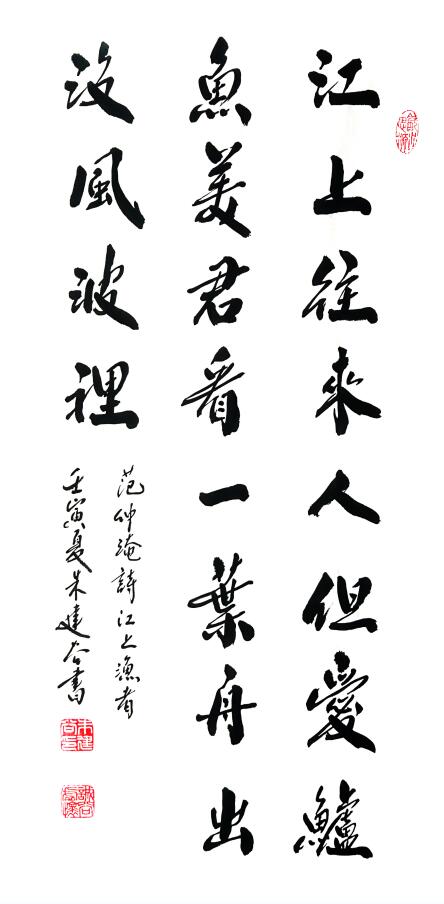 江上往來人但愛鱸
魚美君看一葉舟出
没風波裡
范仲淹詩江上漁者
壬寅夏朱建谷書